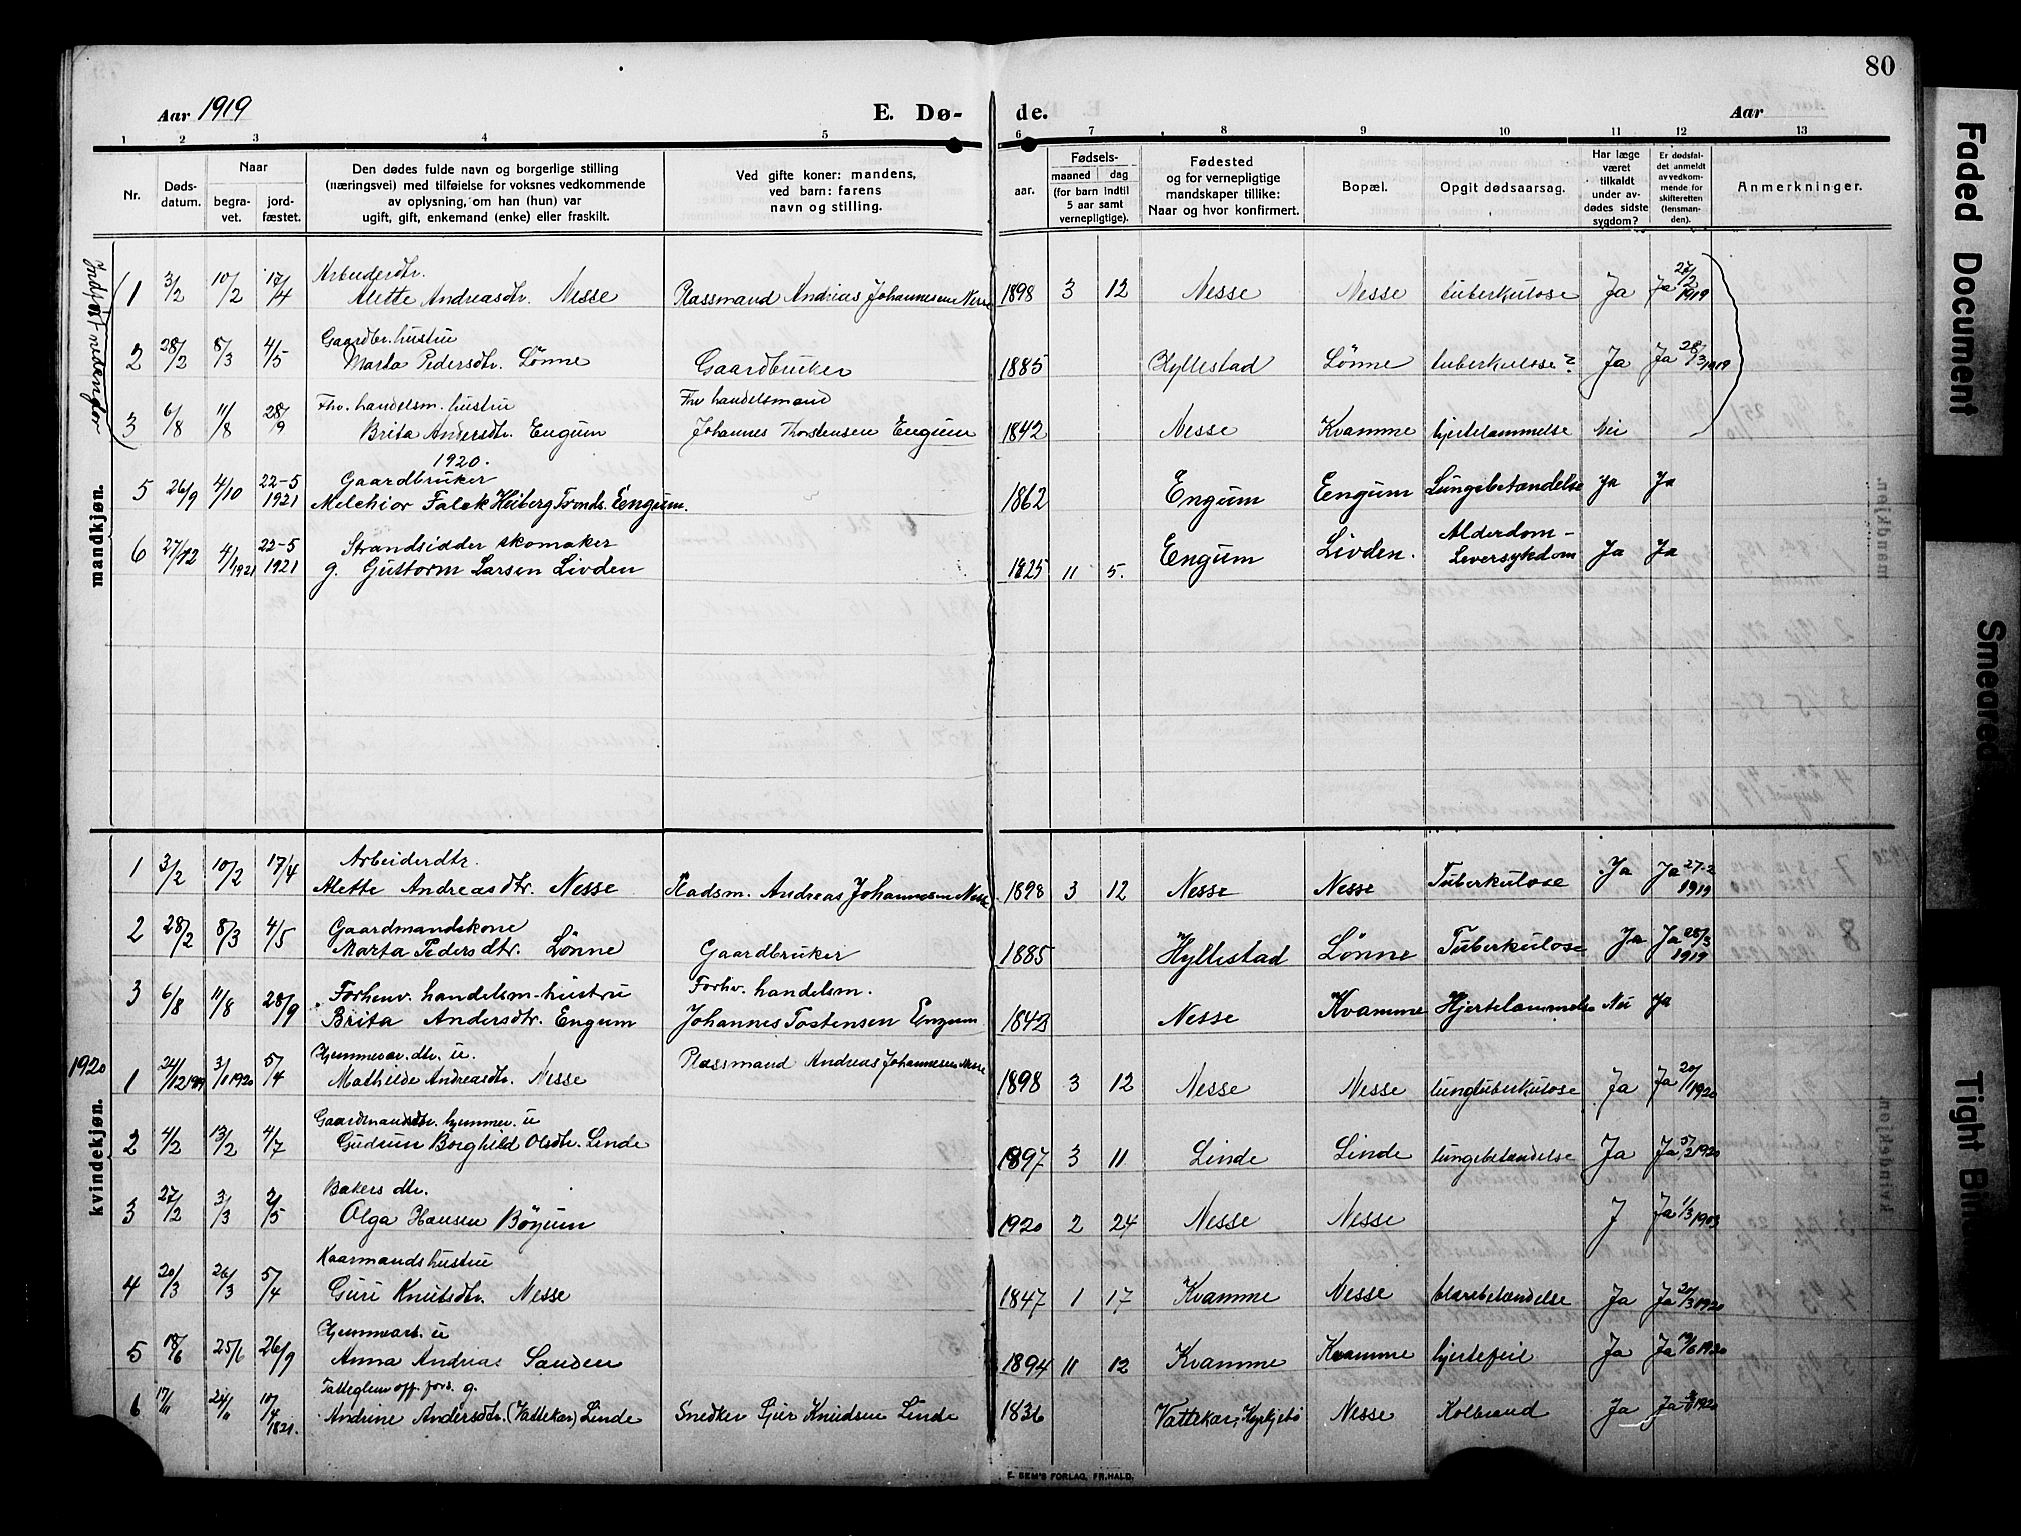 80
Aar 1919
E. Dø-
de.
Aar
1 2 3 4 5 6 7 8 9 10 11 12 13
Nr.
Døds-
datum.
Naar
begra-
vet.
jord-
fæstet.
Den dødes fulde navn og borgerlige stilling
(næringsvei) med tilføielse for voksnes vedkommende
av oplysning, om han (hun) var
ugift, gift, enkemand (enke) eller fraskilt.
Ved gifte koner: mandens,
ved barn: farens
navn og stilling.
Fødsels-
aar.
maaned dag
(for barn indtil
5 aar samt
vernepligtige).
Fødested
og for vernepligtige
mandskaper tillike:
Naar og hvor konfirmert.
Bopæl.
Opgit dødsaarsag.
Har læge
været
tilkaldt
under av-
dødes sidste
sygdom?
Er dødsfal-
det anmeldt
av vedkom-
mende for
skifteretten
(lensman-
den).
Anmerkninger.
mandkjøn.
Arbeiderdtr.
1 3/2 10/2 17/4 Alette Andreasdtr. Nesse Plassmand Andreas Johannesen Nesse 1898 3 12 Nesse Nesse tuberkulose Ja Ja 27/2 1919
Gaardbr. hustru
2 28/2 8/3 4/5 Marta Pedersdtr. Lønne Gaardbruker 1885 Hyllestad Lønne tuberkulose? Ja Ja 28/3 1919
Fhv. handelsm. hustru Fhv handelsmand
3 6/8 11/8 28/9 Brita Andersdtr. Engum Johannes Thorstensen Engum 1842 Nesse Kvamme hjertelammelse Nei
1920.
Gaardbruker
5 26/9 4/10 22-5 1921 Melchior Falck Heiberg Tronds. Eengum. 1862 Engum Eengum Lungebetændelse Ja Ja
Strandsidder skomaker Alderdom-
6 27/12 4/1 1921 22-5 1921 g. Guttorm Larsen Livden 1825 11 5. Engum Livden. Leversykdom Ja Ja
Arbeiderdtr.
1 3/2 10/2 17/4 Alette Andreasdtr. Nesse Pladsm. Andreas Johannesen Nesse 1898 3 12 Nesse Nesse Tuberkulose Ja Ja 27-2 1919
Gaardmandskone
2 28/2 8/3 4/5 Marta Pedersdtr. Lønne Gaardbruker 1885 Hyllestad Lønne Tuberkulose Ja Ja 28/3 1919
Forhenv. handelsm-hustru Forhv. handelsm.
3 6/8 11/8 28/9 Brita Andersdtr. Engum Johannes Tostensen Engum 1842 Nesse Kvamme Hjertelammelse Nei Ja
1920
kvindekjøn.
Hjemmevær. dtr. u.
1 24/12 1919 3/1 1920 5/4 Mathilde Andreasdtr. Nesse Plassmand Andreas Johannesen Nesse 1898 3 12 Nesse Nesse lungtuberkulose Ja Ja 20/1 1920
Gaardmandsdtr. hjemmev. u
2 4/2 13/2 4/7 Gudrun Borghild Olsdtr. Linde 1897 3 11 Linde Linde lungebetændelse Ja Ja 5/2 1920
Bakers dtr.
3 27/2 3/3 2/5 Olga Hansen Bøyum 1920 2 24 Nesse Nesse J Ja 1/3 1903
Kaarmandshustru
4 20/3 26/3 5/4 Guri Knutsdtr. Nesse 1847 1 17 Kvamme Nesse blærebetændelse Ja Ja 20/3 1920
Hjemmeart. u
5 18/6 25/6 26/9 Anna Andrias Sanden 1894 11 12 Kvamme Kvamme hjertefeil Ja Ja 19/6 1920
Fatteglem off. fors. g.
6 17/11 24/11 10/4 1821. Andrine Andersdtr. (Vattekar) Linde Snedker Gjer Knudsen Linde 1836 Vattekar, Kyrkjebø Nesse Kolbrand Ja Ja 1920
E. SEM'S FORLAG, FR.HALD.
Faded Document
Smeared
Tight Bin